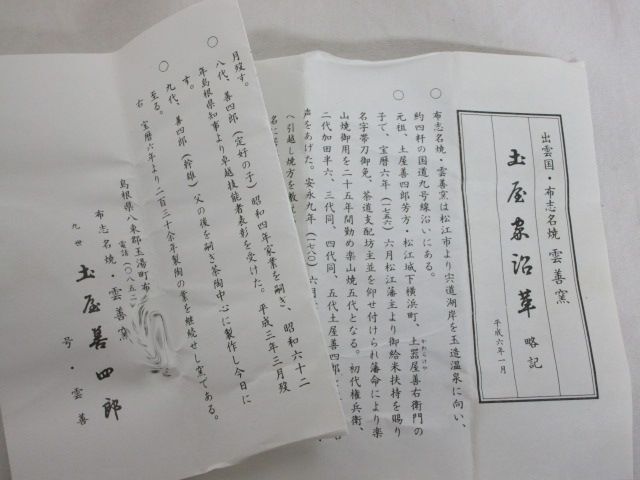 出雲国・布志名焼 雲善窯
土屋家沿革 略記
平成六年一月
○ 布志名焼・雲善窯は松江市より宍道湖岸を玉造温泉に向い、
約四粁の国道九号線沿いにある。
○ 元祖、土屋善四郎芳方・松江城下横浜町、土器屋善右衛門の
かわらけや
子て、宝暦六年（一七五六）六月松江藩主より御給米扶持を賜り
名字帯刀御免、茶道支配坊主並を仰せ付けられ藩命により楽
山焼御用を二十五年間勤め楽山焼五代となる。初代権兵衛、
二代加田半六、三代同、四代同、五代土屋善四郎
声をあげた。安永九年（一七八〇）六月
へ引越し焼方を教え
名に
月歿す。
○ 八代、善四郎（定好の子）昭和四年家業を嗣ぎ、昭和六十二
年島根県知事より卓越技能者表彰を受けた。平成三年三月歿
す。
○ 九代、善四郎（幹雄）父の後を嗣ぎ茶陶中心に製作し今日に
至る。
右 宝暦六年より二百三十余年製陶の業を継続せし家である。
島根県八束郡玉湯町布
電話（〇八五二）
布志名焼・雲善窯
九世 土屋善四郎
号・雲善